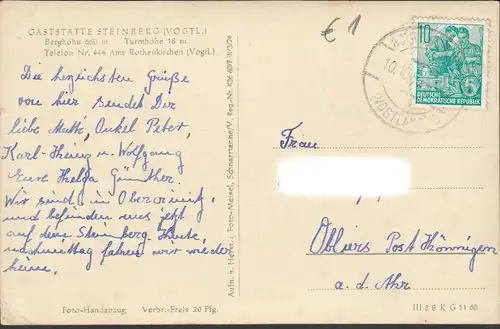 GASTSTÄTTE STEINBERG (VOGTL.)
Berghöhe 660 m Turmhöhe 18 m
Telefon Nr. 444 Amt Rothenkirchen (Vogtl.)
€1
Die herzlichsten Grüße
von hier sendet Dir
liebe Mutti, Onkel Peter,
Karl-Heinz u. Wolfgang
Eure Helga Günther
Wir sind in
und befinden uns jetzt
auf dem Steinberg. Heute
nachmittag fahren wir wieder
heim.
Foto-Handabzug Verbr.-Preis 20 Pfg.
Aufn. u. Herst.: Foto-Meisel, Schnarrtanne/V. Reg.-Nr.
10
DEUTSCHE
DEMOKRATISCHE REPUBLIK
Frau
Post
a. d. Ahr
III 28 K G 11 60